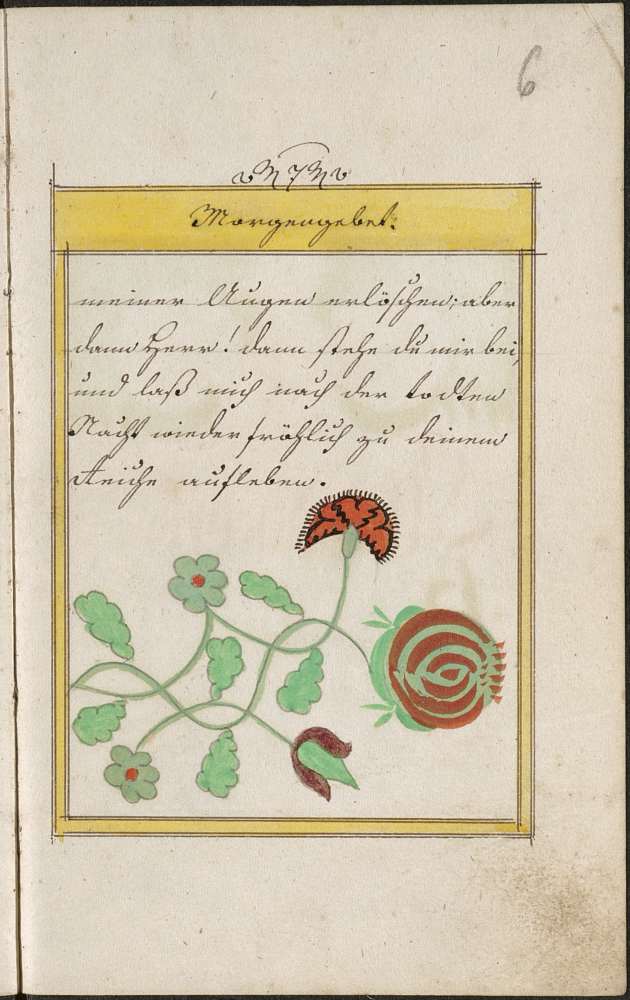 6
7
Morgengebet.
meiner Augen erlöschen; aber
dann Herr! dann stehe du mir bei,
und laß mich nach der todten
Nacht wieder fröhlich zu deinem
Reiche aufleben.